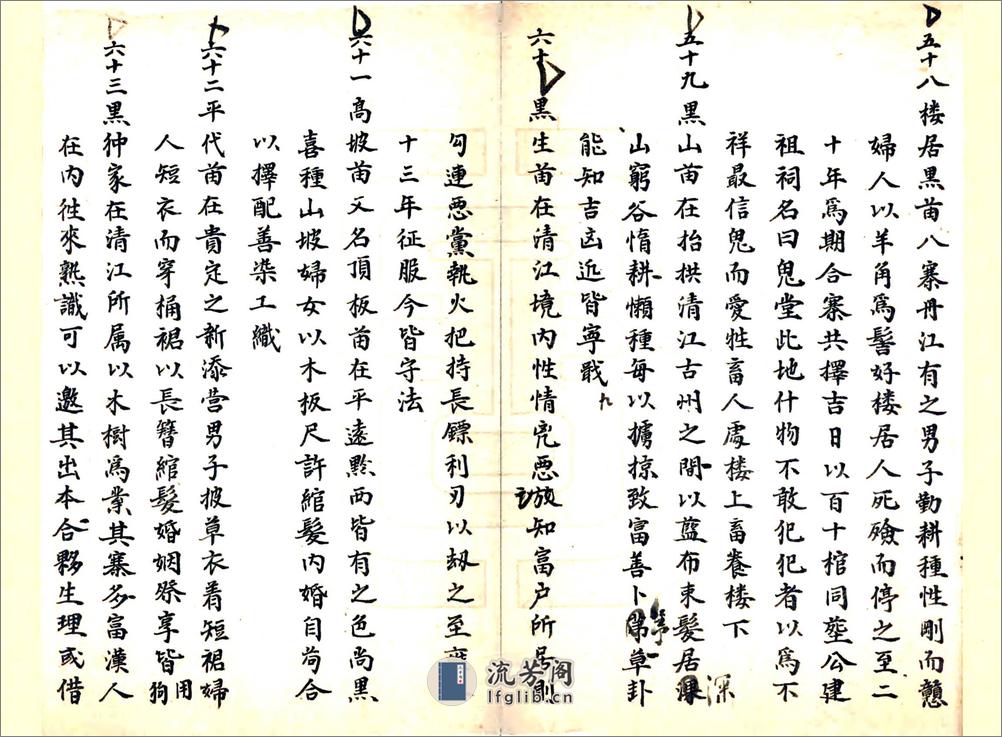 五十八楼居黒苗八寨丹江有之男子勤耕種性剛而戇
婦人以羊角爲髻好楼居人死殮而停之至二
十年爲期合寨共擇吉日以百十棺同塟公建
祖祠名曰鬼堂此地什物不敢犯犯者以爲不
祥最信鬼而愛牲畜人處楼上畜養楼下
五十九黒山苗在抬拱清江古州之間以藍布束髮居深
山窮谷惰耕懶種每以擄掠致富善卜茅草卦
能知吉凶近皆寧戢
六十黒生苗在清江境内性情兇惡訪知富户所居則
勾連惡黨執火把持長鏢利刃以刼之至雍
十三年征服今皆守法
六十一高坡苗又名頂板苗在平遠黔西皆有之色尚黒
喜種山坡婦女以木板尺許綰髮内婚自苟合
以擇配善染工織
六十二平代苗在貴定之新添营男子披草衣着短裙婦
人短衣而穿桶裙以長簪綰髮婚姻祭享皆用狗
六十三黒狆家在清江所属以木樹爲業其寨多富漢人
在内徃來熟識可以邀其出本合夥生理或借
流芳阁
lfglib.cn